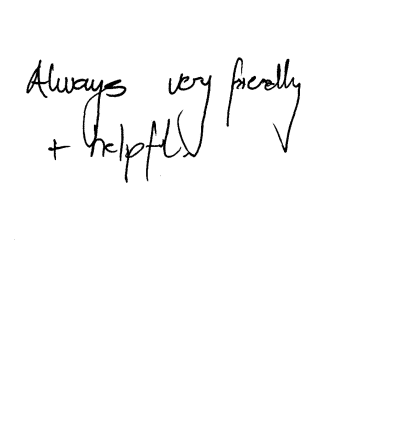 Always very friendly
+ helpful